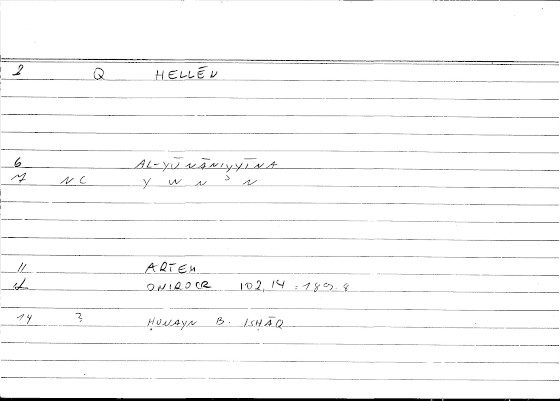 2 Q HELLĒN
6 AL-YŪNĀNIYYĪNA
7 NC Y W N ʾ N
11 ARTEM
ONIROCR 102,14 = 189.8
14 3 ḤUNAYN B. ISḤĀQ